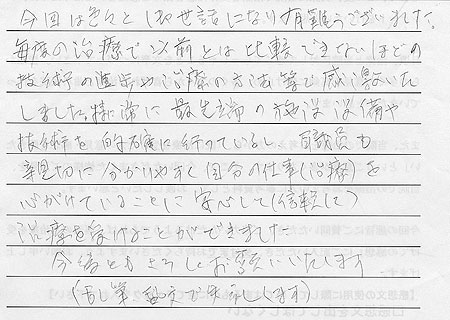 今回は色々とお世話になり有難うございました。
毎度の治療で以前とは比較できないほどの
技術の進歩や治療の方法等で感激いた
しました。特に 最先端の施設設備や
技術を的確に行っているし 職員も
親切に分かりやすく自分の仕事(治療)を
心がけていることに安心して(信頼して)
治療を受けることができました。
今後ともよろしくお願いいたします
(乱筆乱文で失礼します)